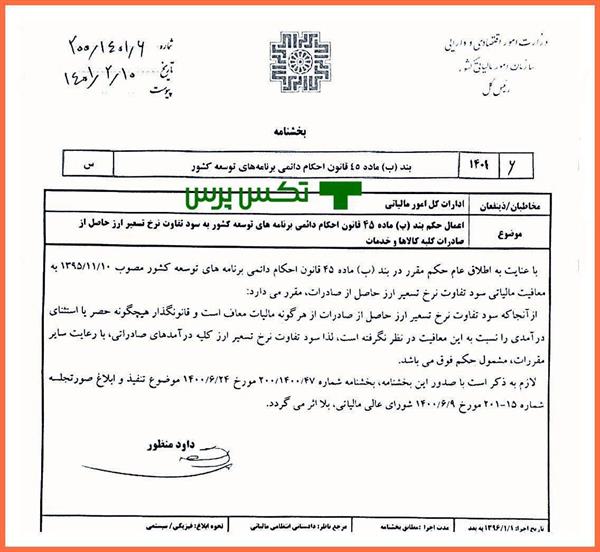 وزارت امور اقتصادی و دارایی
سازمان امور مالیاتی کشور
رئیس کل
شماره ۲۰۰/۱۴۰۱/۶
تاریخ ۱۴۰۱/۲/۱۰
پیوست
بخشنامه
۶ ۱۴۰۱ بند (ب) ماده ۴۵ قانون احکام دائمی برنامه‌های توسعه کشور س
تکس پرس
مخاطبان/ذینفعان ادارات کل امور مالیاتی
موضوع اعمال حکم بند (پ) ماده ۴۵ قانون احکام دائمی برنامه های توسعه کشور به سود تفاوت نرخ تسعیر ارز حاصل از
صادرات کلیه کالاها و خدمات
با عنایت به اطلاق عام حکم مقرر در بند (ب) ماده ۴۵ قانون احکام دائمی برنامه های توسعه کشور مصوب ۱۳۹۵/۱۱/۱۰ به
معافیت مالیاتی سود تفاوت نرخ تسعیر ارز حاصل از صادرات، مقرر می دارد:
ازآنجاکه سود تفاوت نرخ تسعیر ارز حاصل از صادرات از هرگونه مالیات معاف است و قانونگذار هیچگونه حصر یا استثنای
درآمدی را نسبت به این معافیت در نظر نگرفته است، لذا سود تفاوت نرخ تسعیر ارز کلیه درآمدهای صادراتی، با رعایت سایر
مقررات، مشمول حکم فوق می باشد.
لازم به ذکر است با صدور این بخشنامه، بخشنامه شماره ۲۰۰/۱۴۰۰/۴۷ مورخ ۱۴۰۰/۶/۲۴ موضوع تنفیذ و ابلاغ صورتجلسه
شماره ۱۵-۲۰۱ مورخ ۱۴۰۰/۶/۹ شورای عالی مالیاتی، بلا اثر می گردد.
داود منظور
تاریخ اجرا: ۱۳۹۶/۱/۱ به بعد مدت اجرا: مطابق بخشنامه مرجع ناظر: دادستانی انتظامی مالیاتی نحوه ابلاغ: فیزیکی/ سیستمی